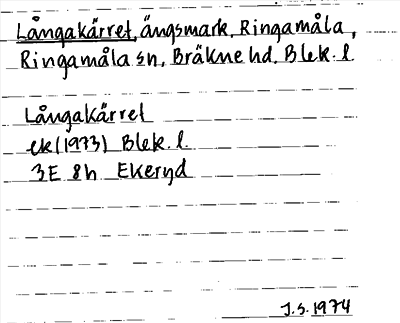 Långakärret, ängsmark, Ringamåla,
Ringamåla sn, Bräkne hd, Blek. l.
Långakärret
ek (1973) Blek. l.
3E 8h Ekeryd
J.S. 1974